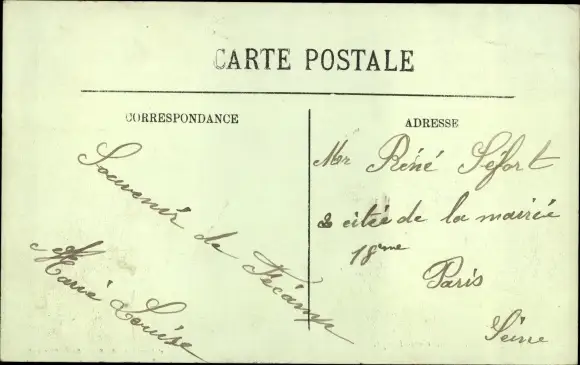 CARTE POSTALE
CORRESPONDANCE
Souvenir de Fécamp
Marie Louise
ADRESSE
Mer René Séfort
2 citée de la mairie
18eme
Paris
Seine